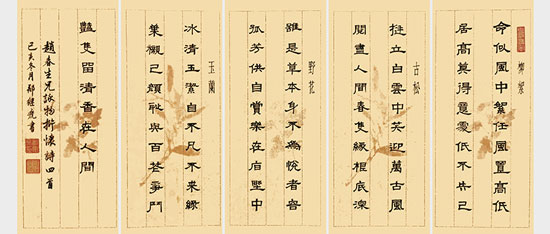 柳絮
命似風中絮任風置高低
居高莫得意處低不失己
古松
挺立白雲中笑迎萬古風
閱盡人間春隻緣根底深
野花
雖是草本身不為悅者容
孤芳供自賞樂在壑中
玉蘭
冰清玉潔自不凡不求綠
葉襯己顏恥與百花爭鬥
豔隻留清香在人間
趙春生兄詠物抒懷詩四首
己亥冬月書